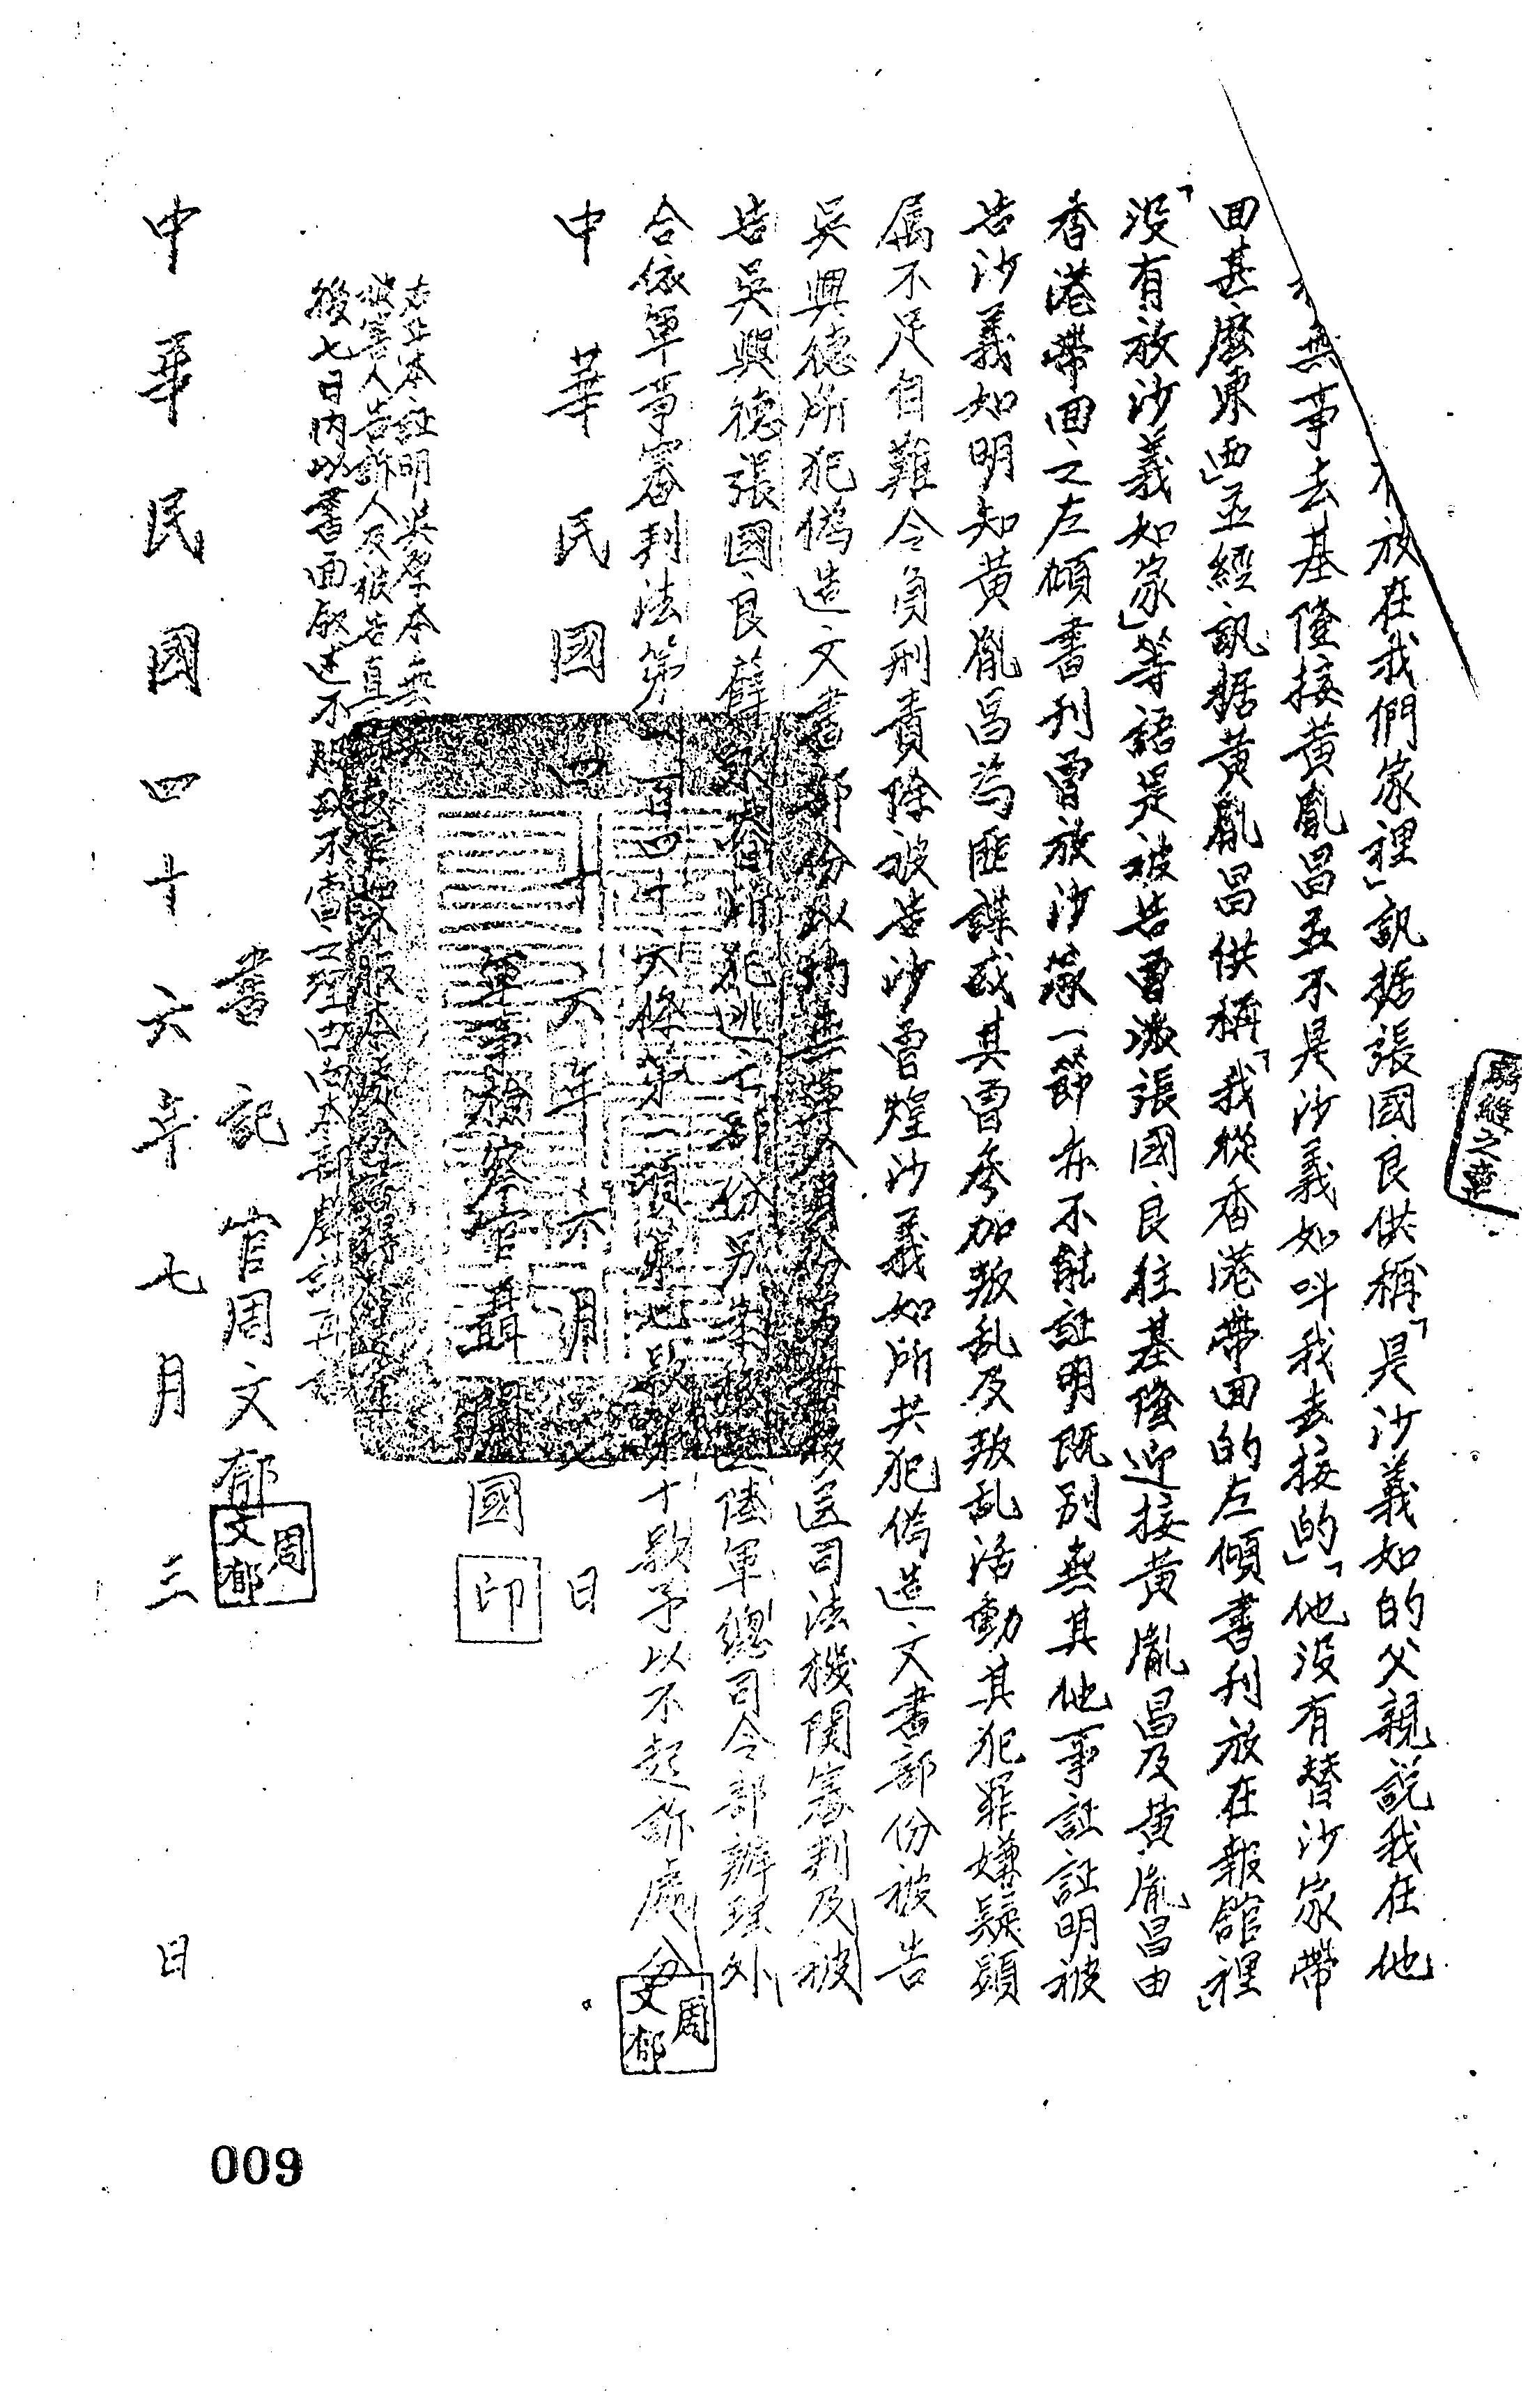 放在我們家裡」訊据張國良供稱「是沙義如的父親說我在他
無事去基隆接黃胤昌並不是沙義如叫我去接的」「他沒有替沙家帶
回甚麼東西」並經訊据黃胤昌供稱「我從香港帶回的左傾書刊放在報館裡」
「沒有放沙義如家」等語是被告曾派張國良往基隆迎接黃胤昌及黃胤昌由
香港帶回之左傾書刊曾放沙家一節亦不能証明既別無其他事証証明被
告沙義如明知黃胤昌為匪諜或其曾參加叛乱及叛乱活動其犯罪嫌疑顯
属不足自難令負刑責除被告沙曾煌沙義如所共犯偽造文書部份被告
吳興德所犯偽造文書部份以均無軍人身份另案移送司法機関審判及被
告吳興德張國良薛 所犯逃亡部份另案移送陸軍總司令部辦理外
合依軍事審判法第一百四十六條第一項第七款第十款予以不起訴處分
周文郁
中華民國四十六年六月 日
軍事檢察官聶開國
印
右正本証明與原本無異
被害人告訴人及被告直屬長官如不服本處分得於送達
後七日內以書面敘述不服 不當之理由向本部聲請再議
書記官周文郁
周文郁
中華民國四十六年七月三日
009